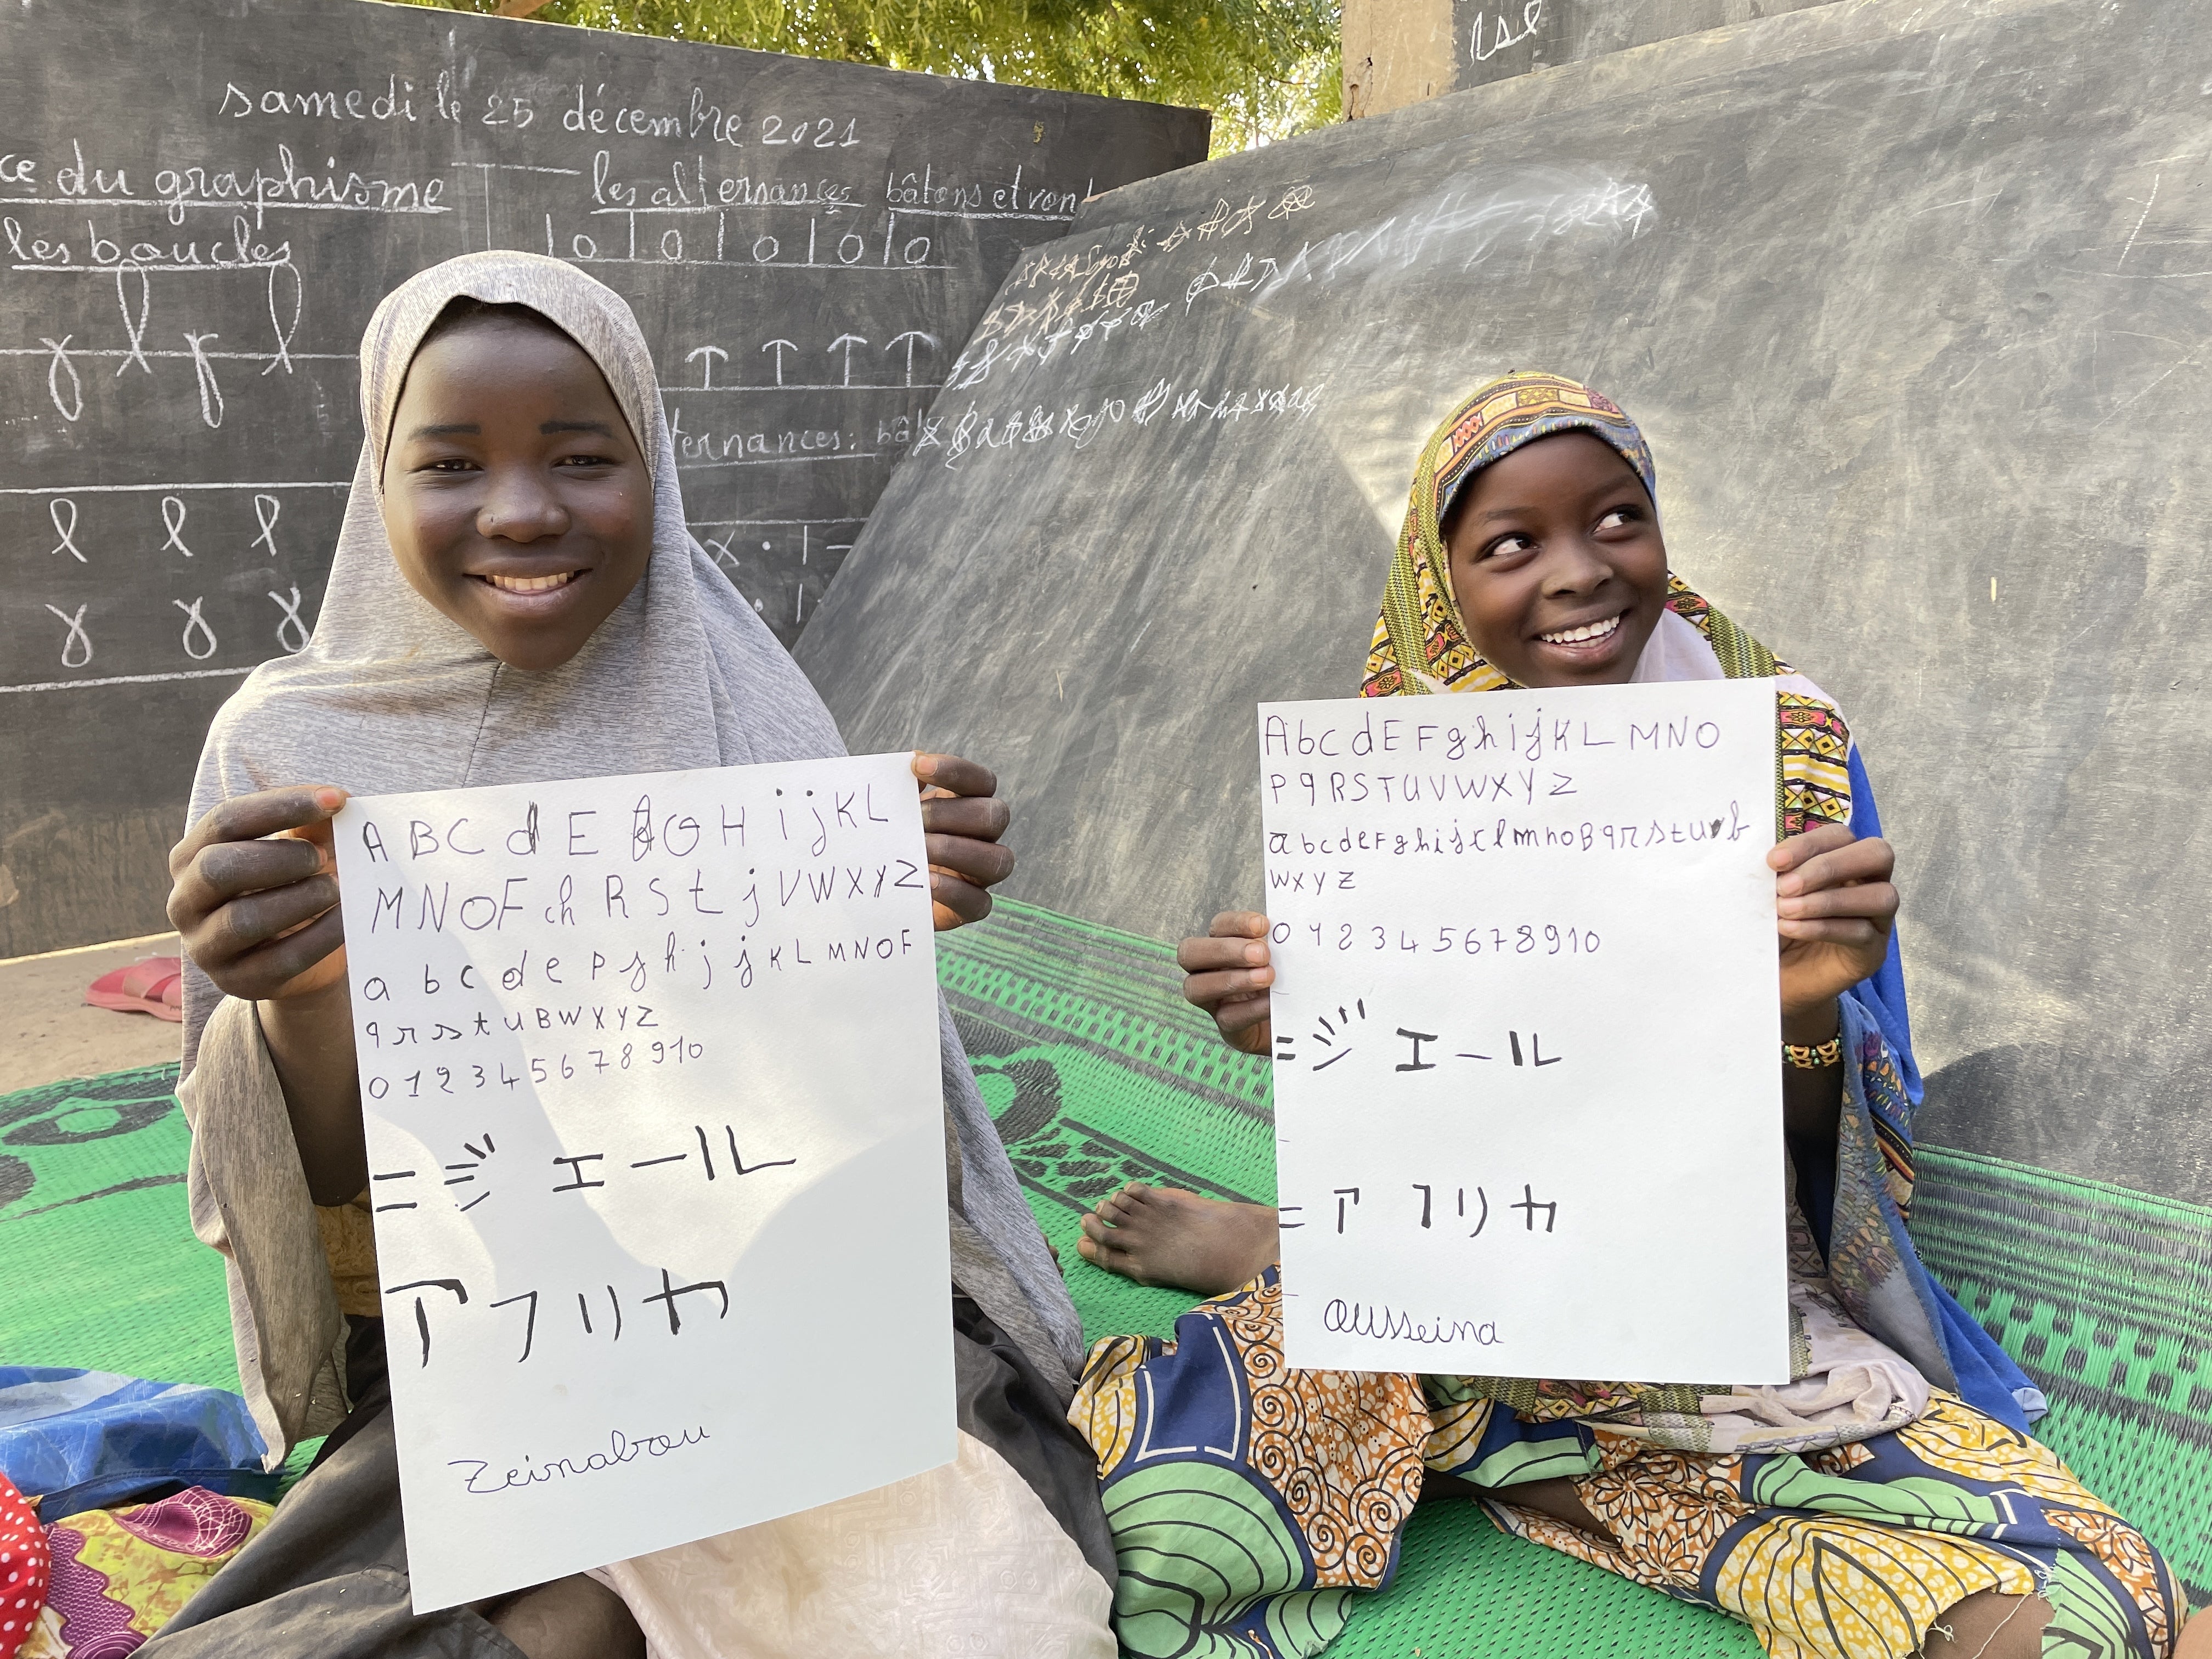 samedi le 25 décembre 2021
ce du graphisme
les alternances bâtons et ron
les boucles
1010101010
ernances: bâ
A B C d E G H i j K L
M N O F ch R S t j V W X Y Z
a b c d e p g h j j K L M N O F
q r s t u B W X Y Z
0 1 2 3 4 5 6 7 8 9 10
ニジェール
アフリカ
Zeinabou
A b c d E F g h i j K L M N O
P q R S T U V W X Y Z
a b c d e F g h i j c l m n o B q r s t u v b
w x y z
0 1 2 3 4 5 6 7 8 9 10
=ジェール
=アフリカ
Ousseina